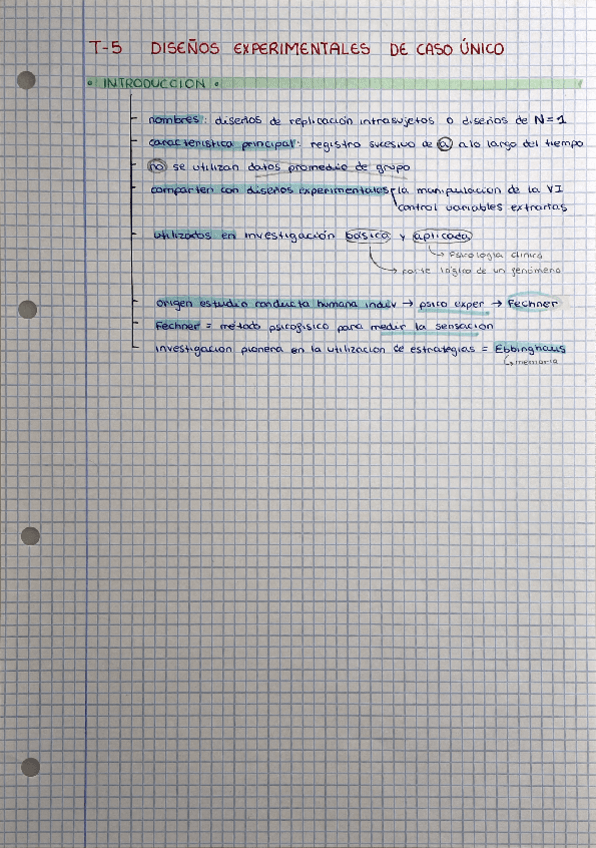 T-5 DISEÑOS EXPERIMENTALES DE CASO ÚNICO
• INTRODUCCION •
nombres: diseños de replicación intrasujetos o diseños de N=1
característica principal: registro sucesivo de a lo largo del tiempo
no se utilizan datos promedio de grupo
comparten con diseños experimentales la manipulacion de la VI
control variables extrañas
utilizados en investigación básica y aplicada
→ Psicología clínica
→ corte lógico de un fenómeno
origen estudio conducta humana indiv → psico exper → Fechner
Fechner = metodo psicofisico para medir la sensación
investigación pionera en la utilización de estrategias = Ebbinghaus
↳ memoria